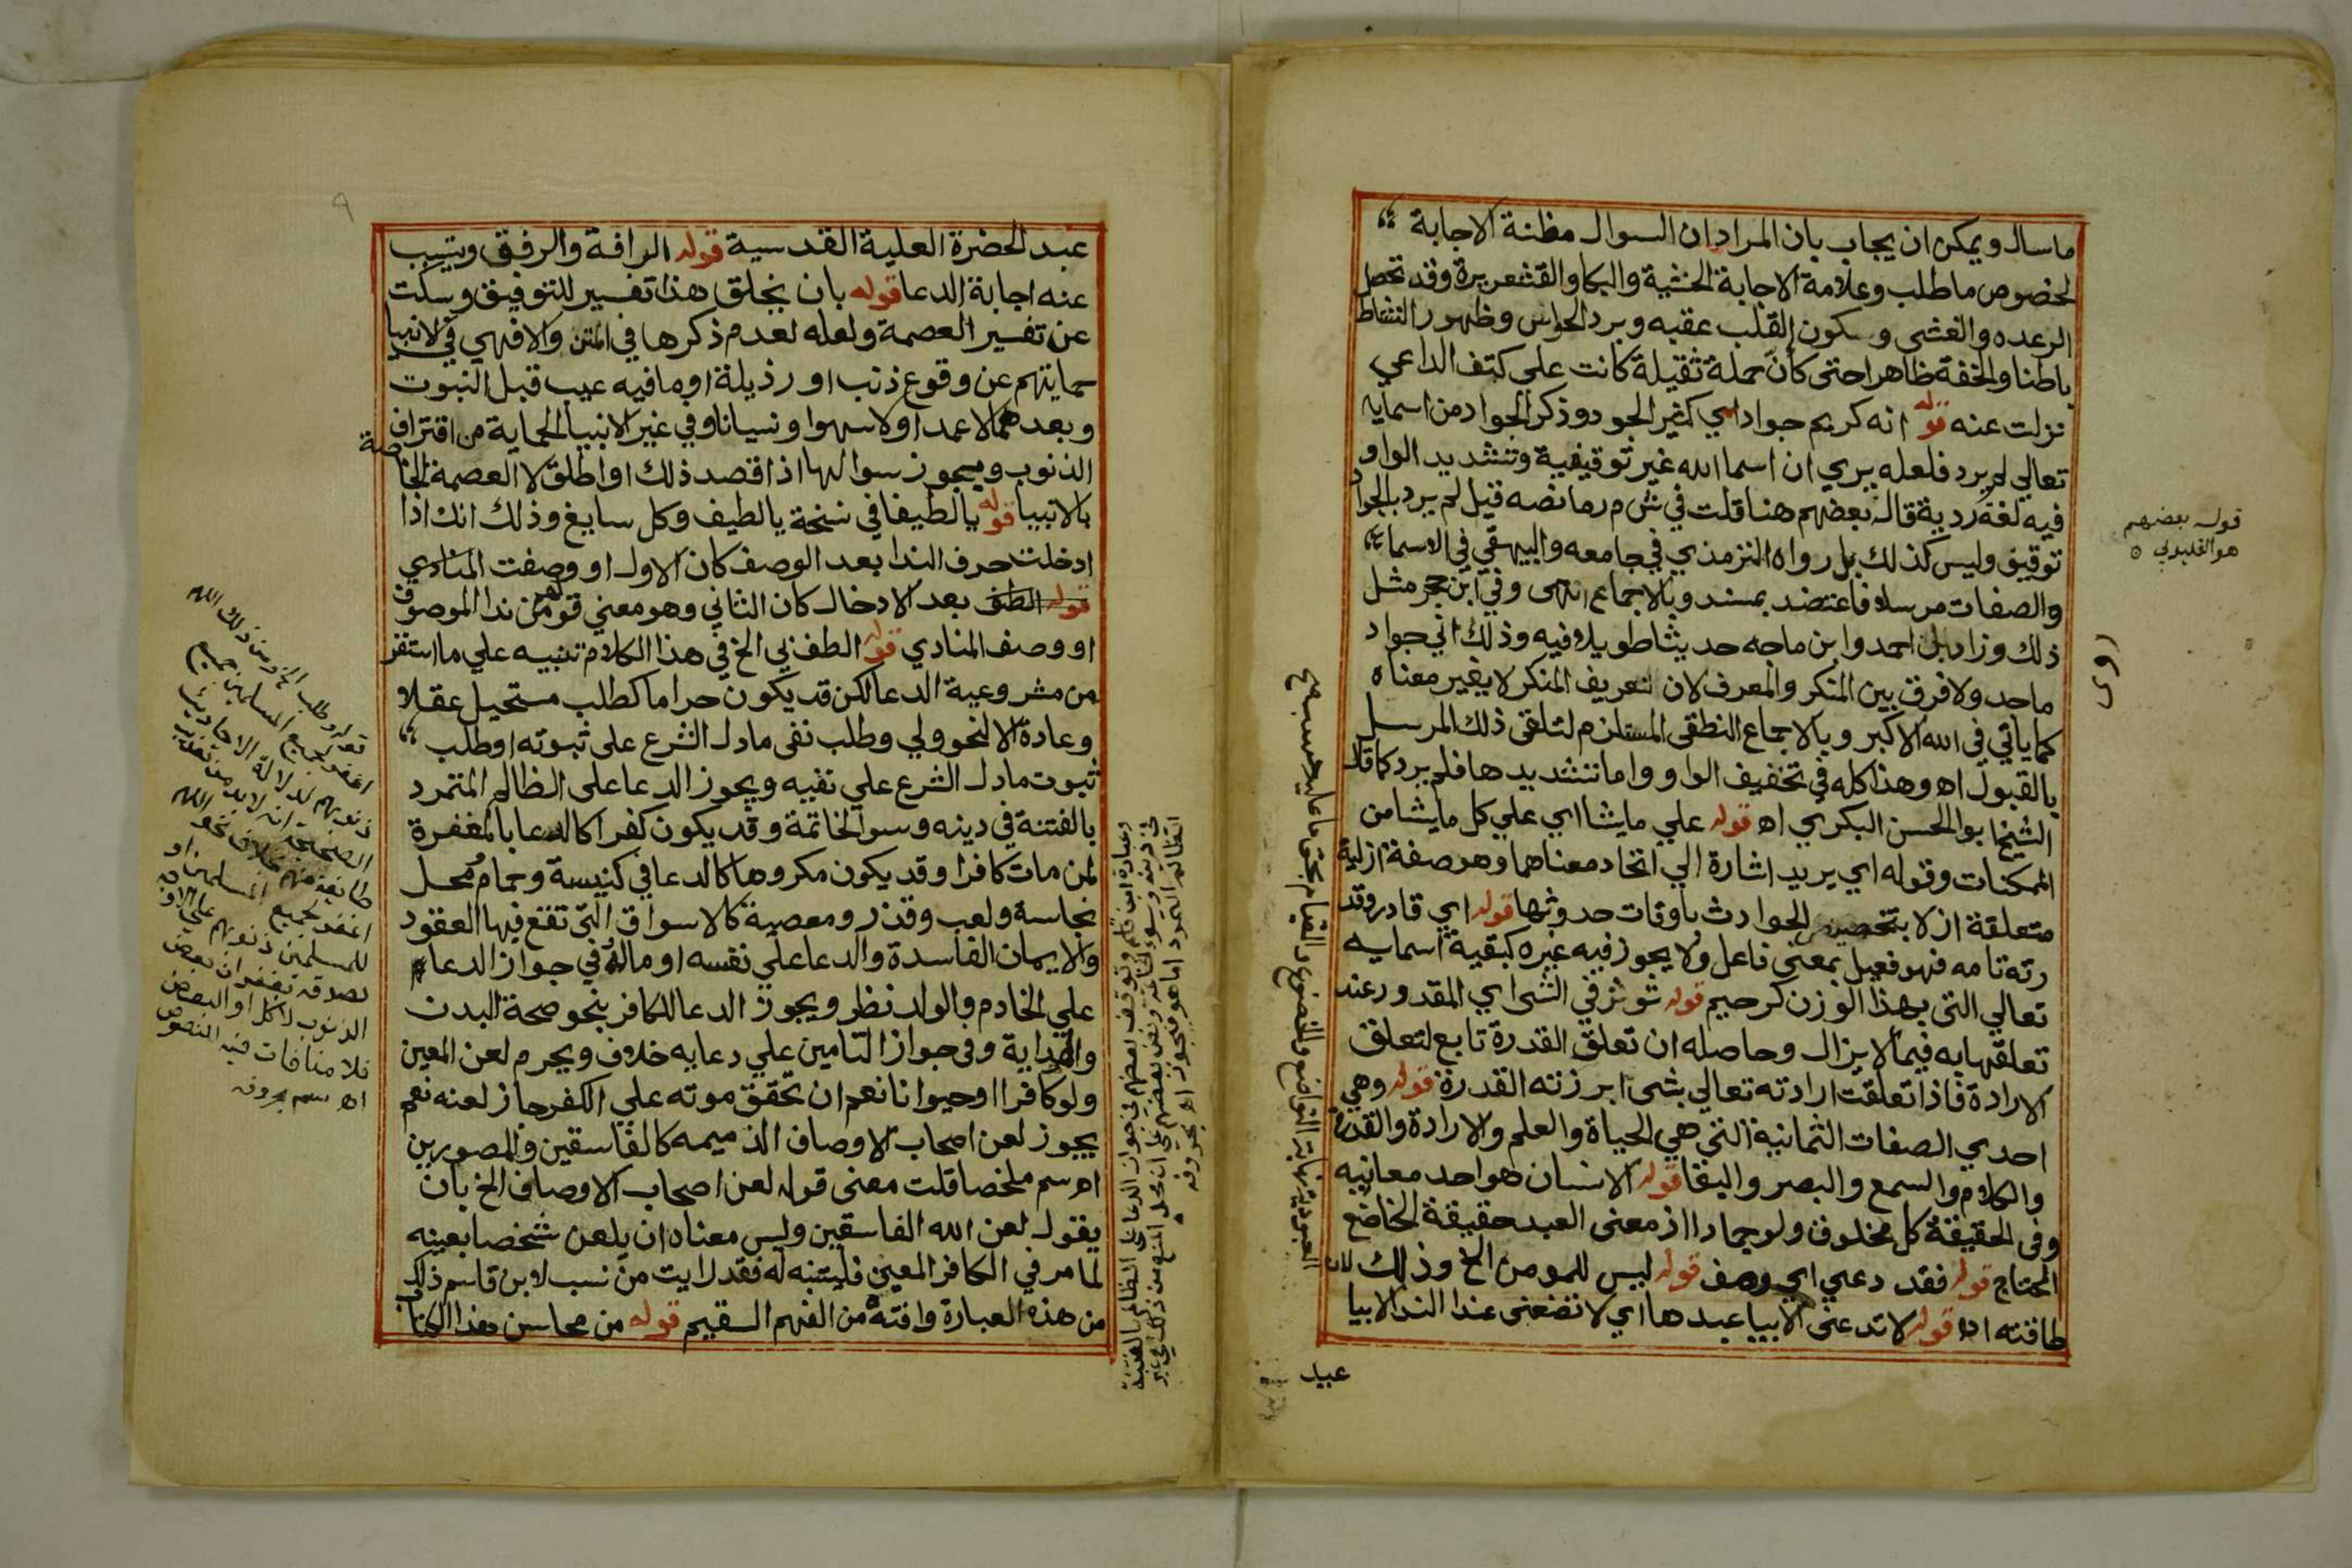 ما سال ويمكن ان يجاب بان المراد ان السوال مظنة الاجابة
لخصوص ما طلب وعلامة الاجابة الخشية والبكا والقشعريرة وقد تحصل
الرعده والغشى وسكون القلب عقبه وبرد الحواس وظهور النشاط
باطنا والخفة ظاهرا حتى كان حملة ثقيلة كانت علي كتف الداعي
نزلت عنه قوله انه كريم جواد اي كثير الجود وذكر الجواد من اسمايه
تعالي لم يرد فلعله يري ان اسما الله غير توقيفية وتشديد الواو
فيه لغة ردية قاله بعضهم هنا قلت في ش م ر ما نصه قيل لم يرد بالجواد
توقيف وليس كذلك بل رواه الترمذي في جامعه والبيهقي في الاسما
والصفات مرسلا فاعتضد بمسند وبالاجماع انتهى وفي ابن حجر مثل
ذلك وزاد بل احمد وابن ماجه حديثا طويلا فيه وذلك اني جواد
ماجد ولا فرق بين المنكر والمعرف لان تعريف المنكر لا يغير معناه
كما ياتي في الله الاكبر وبالاجماع النطقي المستلزم لتلقي ذلك المرسل
بالقبول اه وهذا كله في تخفيف الواو واما تشديدها فلم يرد كما قال
الشيخ ابو الحسن البكري اه قوله علي ما يشا اي علي كل ما يشا من
الممكنات وقوله اي يريد اشارة الي اتحاد معناهما وهو صفة ازلية
متعلقة ازلا بتخصيص الحوادث باوقات حدوثها قوله اي قادر وقد
رته تامه فهو فعيل بمعني فاعل ولا يجوز فيه غيره كبقية اسمايه
تعالي التي بهذا الوزن كرحيم قوله توثر في الشي اي المقدور عند
تعلقها به فيما لا يزال وحاصله ان تعلق القدرة تابع لتعلق
الارادة فاذا تعلقت ارادته تعالي بشي ابرزته القدرة قوله وهي
احدي الصفات الثمانية التي هي الحياة والعلم والارادة والقدرة
والكلام والسمع والبصر والبقا قوله الانسان هو احد معانيه
وفي الحقيقة كل مخلوق ولو جمادا اذ معنى العبد حقيقة الخاضع
المحتاج قوله فقد دعي اي وصف قوله ليس للمومن الخ وذلك لان
طاقته اه قوله لا تدعني الا بيا عبدها اي لا تضفني عند الندا الا بيا
عبيد
قوله بعضهم
هو القليوبي
روى
عبد الحضرة العلية القدسية قوله الرافة والرفق ويتسبب
عنه اجابة الدعا قوله بان يخلق هذا تفسير للتوفيق وسكت
عن تفسير العصمة ولعله لعدم ذكرها في المتن والا فهي في الانبيا
حمايتهم عن وقوع ذنب او رذيلة او ما فيه عيب قبل النبوت
وبعدها لا عمدا ولا سهوا ونسيانا وفي غير الانبيا الحماية من اقتراف
الذنوب ويجوز سوالها اذا قصد ذلك او اطلق لا العصمة الخاصة
بالانبيا قوله يا لطيفا في نسخة يا لطيف وكل سايغ وذلك انك اذا
ادخلت حرف الندا بعد الوصف كان الاول او وصفت المنادي
قوله الطف بعد الادخال كان الثاني وهو معني قولهم من ندا الموصوف
او وصف المنادي قوله الطف بي الخ في هذا الكلام تنبيه علي ما استقر
من مشروعية الدعا لكن قد يكون حراما كطلب مستحيل عقلا
وعادة الا لنحو ولي وطلب نفي ما دل الشرع على ثبوته او طلب
ثبوت ما دل الشرع علي نفيه ويجوز الدعا على الظالم المتمرد
بالفتنة في دينه وسو الخاتمة وقد يكون كفرا كالدعا بالمغفرة
لمن مات كافرا وقد يكون مكروها كالدعا في كنيسة وحمام ومحل
نجاسة ولعب وقذر ومعصية كالاسواق التي تقع فيها العقود
والايمان الفاسدة والدعا علي نفسه او ماله وفي جواز الدعا
علي الخادم والولد نظر ويجوز الدعا للكافر بنحو صحة البدن
والهداية وفي جواز التامين علي دعايه خلاف ويحرم لعن المعين
ولو كافرا او حيوانا نعم ان تحقق موته علي الكفر جاز لعنه نعم
يجوز لعن اصحاب الاوصاف الذميمه كالفاسقين والمصورين
اه سم ملخصا قلت معنى قوله لعن اصحاب الاوصاف الخ بان
يقول لعن الله الفاسقين وليس معناه ان يلعن شخصا بعينه
لما مر في الكافر المعين فليتنبه له فقد رايت من نسب لابن قاسم ذلك
من هذه العبارة وافته من الفهم السقيم قوله من محاسن هذا الكتاب
اغفر لجميع المسلمين جميع
ذنوبهم لدلالة الاحاديث
الصحيحة انه لا بد من تعذيب
طايفة منهم بخلاف نحو اللهم
اغفر لجميع المسلمين او
للمسلمين ذنوبهم
الذنوب للكل او البعض
فلا منافات فيه النصوص
اه سم بحروفه